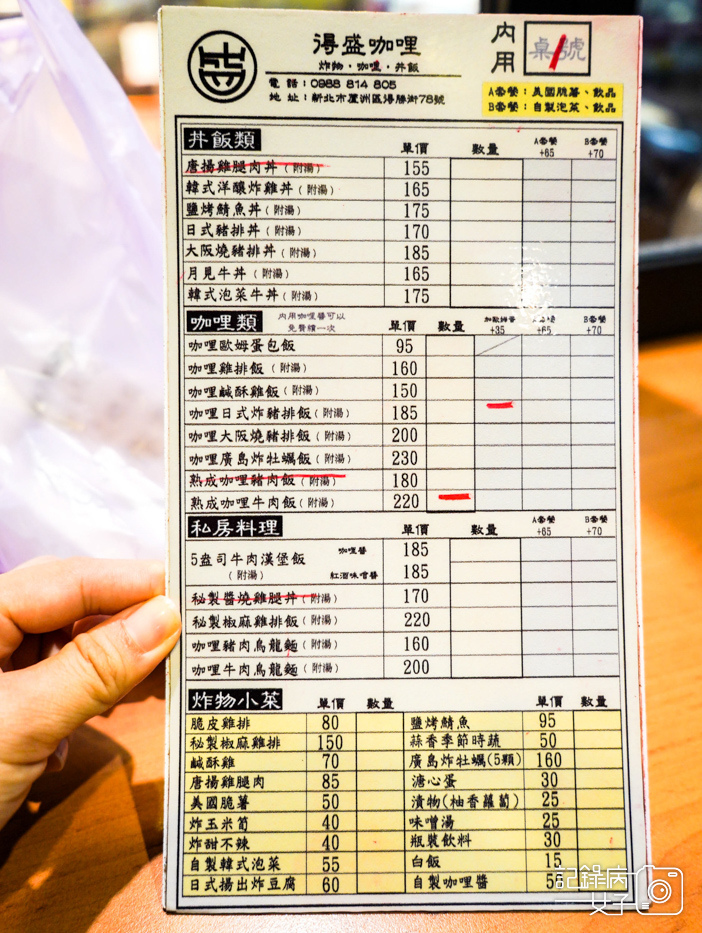 得盛咖哩
炸物·咖哩·丼飯
電話：0988 814 805
地址：新北市蘆洲區得勝街78號
內用 桌號
A套餐：美國脆薯、飲品
B套餐：自製泡菜、飲品
丼飯類 單價 數量 A套餐+65 B套餐+70
唐揚雞腿肉丼（附湯） 155
韓式洋釀炸雞丼（附湯） 165
鹽烤鯖魚丼（附湯） 175
日式豬排丼（附湯） 170
大阪燒豬排丼（附湯） 185
月見牛丼（附湯） 165
韓式泡菜牛丼（附湯） 175
咖哩類 內用咖哩醬可以免費續一次 單價 數量 加歐姆蛋+35 +65 B套餐+70
咖哩歐姆蛋包飯 95
咖哩雞排飯（附湯） 160
咖哩鹹酥雞飯（附湯） 150
咖哩日式炸豬排飯（附湯） 185
咖哩大阪燒豬排飯（附湯） 200
咖哩廣島炸牡蠣飯（附湯） 230
熟成咖哩豬肉飯（附湯） 180
熟成咖哩牛肉飯（附湯） 220
私房料理 單價 數量 A套餐+65 B套餐+70
5盎司牛肉漢堡飯（附湯） 咖哩醬 185
紅酒味噌醬 185
秘製醬燒雞腿丼（附湯） 170
秘製椒麻雞排飯（附湯） 220
咖哩豬肉烏龍麵（附湯） 160
咖哩牛肉烏龍麵（附湯） 200
炸物小菜 單價 數量 單價 數量
脆皮雞排 80 鹽烤鯖魚 95
秘製椒麻雞排 150 蒜香季節時蔬 50
鹹酥雞 70 廣島炸牡蠣(5顆) 160
唐揚雞腿肉 85 溏心蛋 30
美國脆薯 50 漬物(柚香蘿蔔) 25
炸玉米筍 40 味噌湯 25
炸甜不辣 40 瓶裝飲料 30
自製韓式泡菜 55 白飯 15
日式揚出炸豆腐 60 自製咖哩醬
記錄病女子